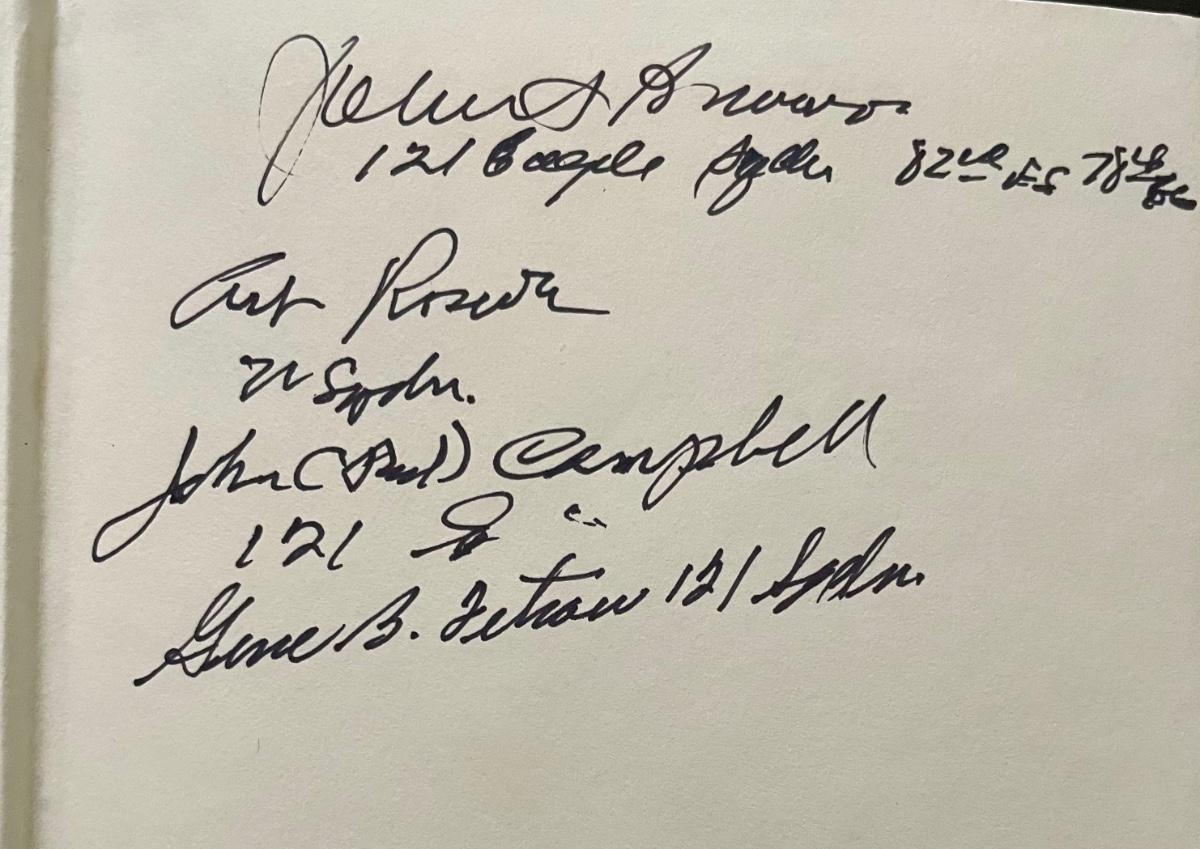 John A Brown
121 Eagle Sqdn 82nd FS 78th FG
Art Roscoe
71 Sqdn.
John (Red) Campbell
121 " "
Gene B. Fetrow 121 Sqdn.